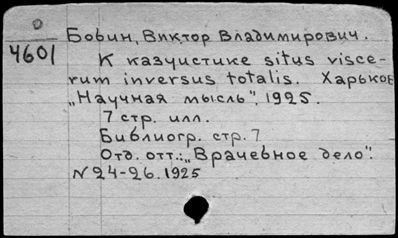 О
4601
Бовин, Виктор Владимирович.
К казуистике situs visce-
rum inversus totalis. Харьков
„Научная мысль", 1925.
7 стр. илл.
Библиогр. стр. 7
Отд. отт.: „Врачебное дело".
N 24-26. 1925